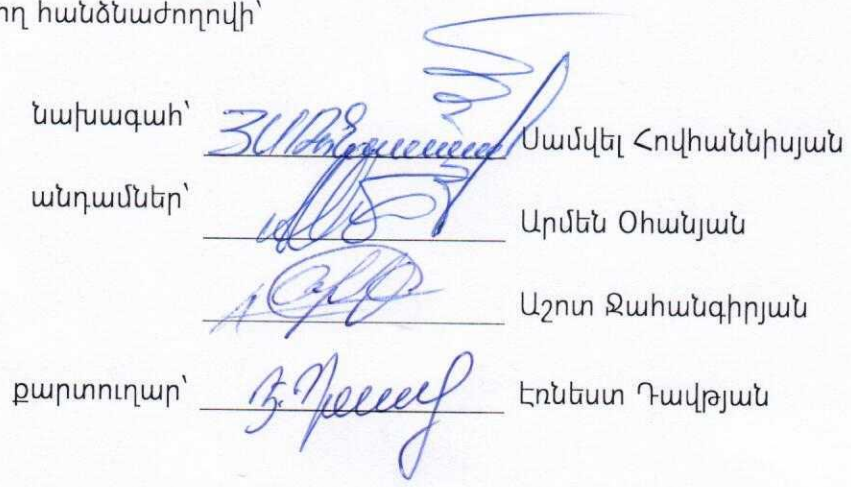 ող հանձնաժողովի՝
նախագահ՝ Սամվել Հովհաննիսյան
անդամներ՝ Արմեն Օհանյան
Աշոտ Ջահանգիրյան
քարտուղար՝ Էռնեստ Դավթյան